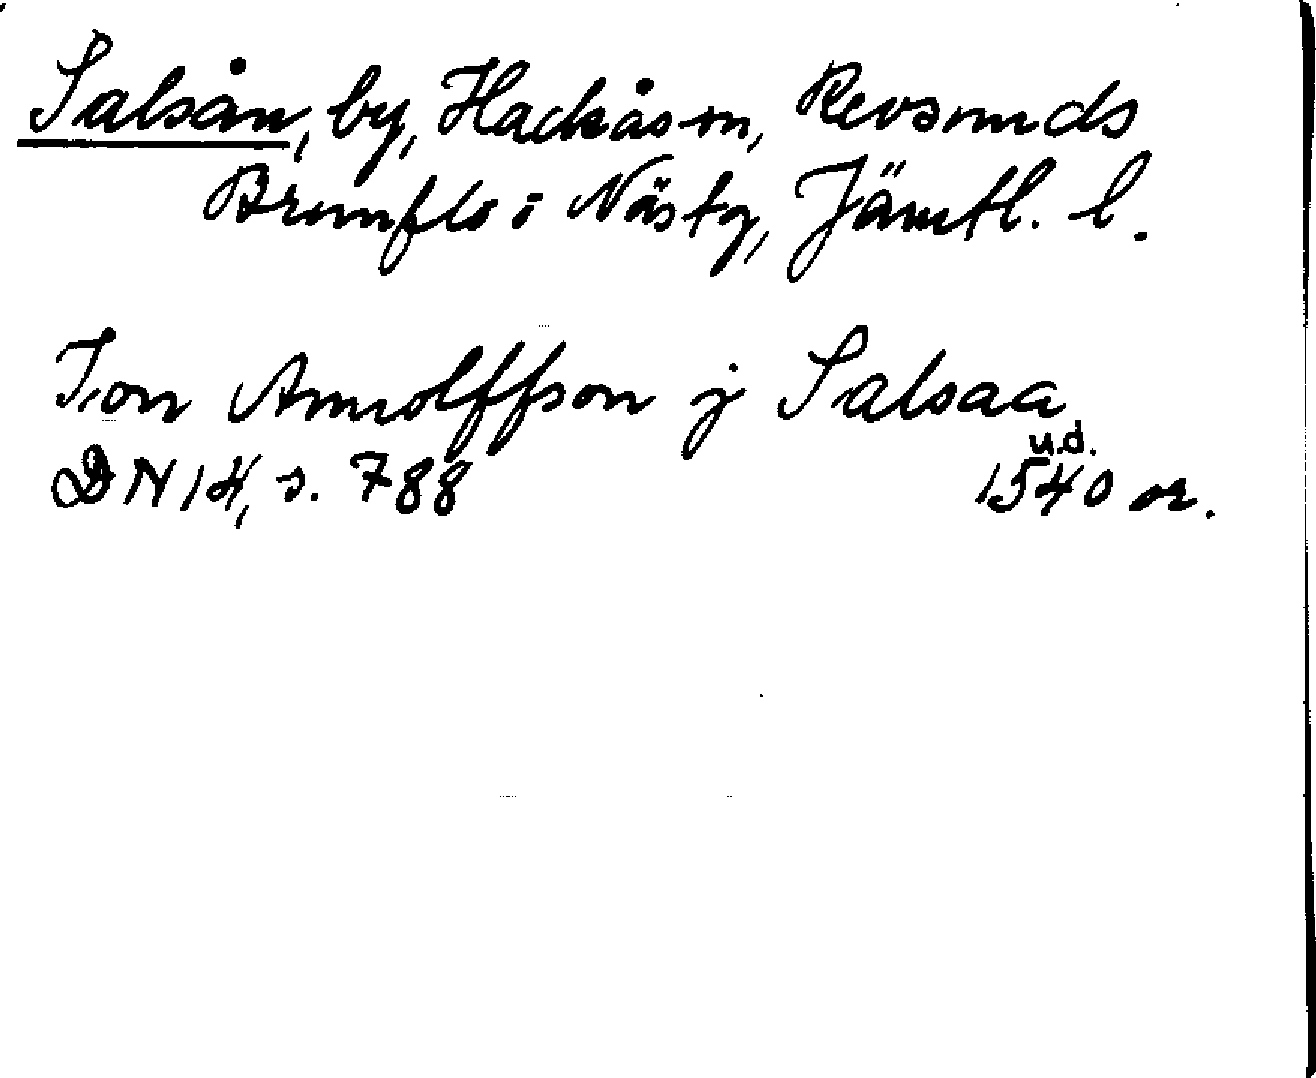 Salsån, by, Hackås sn, Revsunds
Brunflo i Näs tg, Jämtl. l.
Jon Arnnolffson j Salsaa
u.d.
DN 14, s. 788 1540 or.